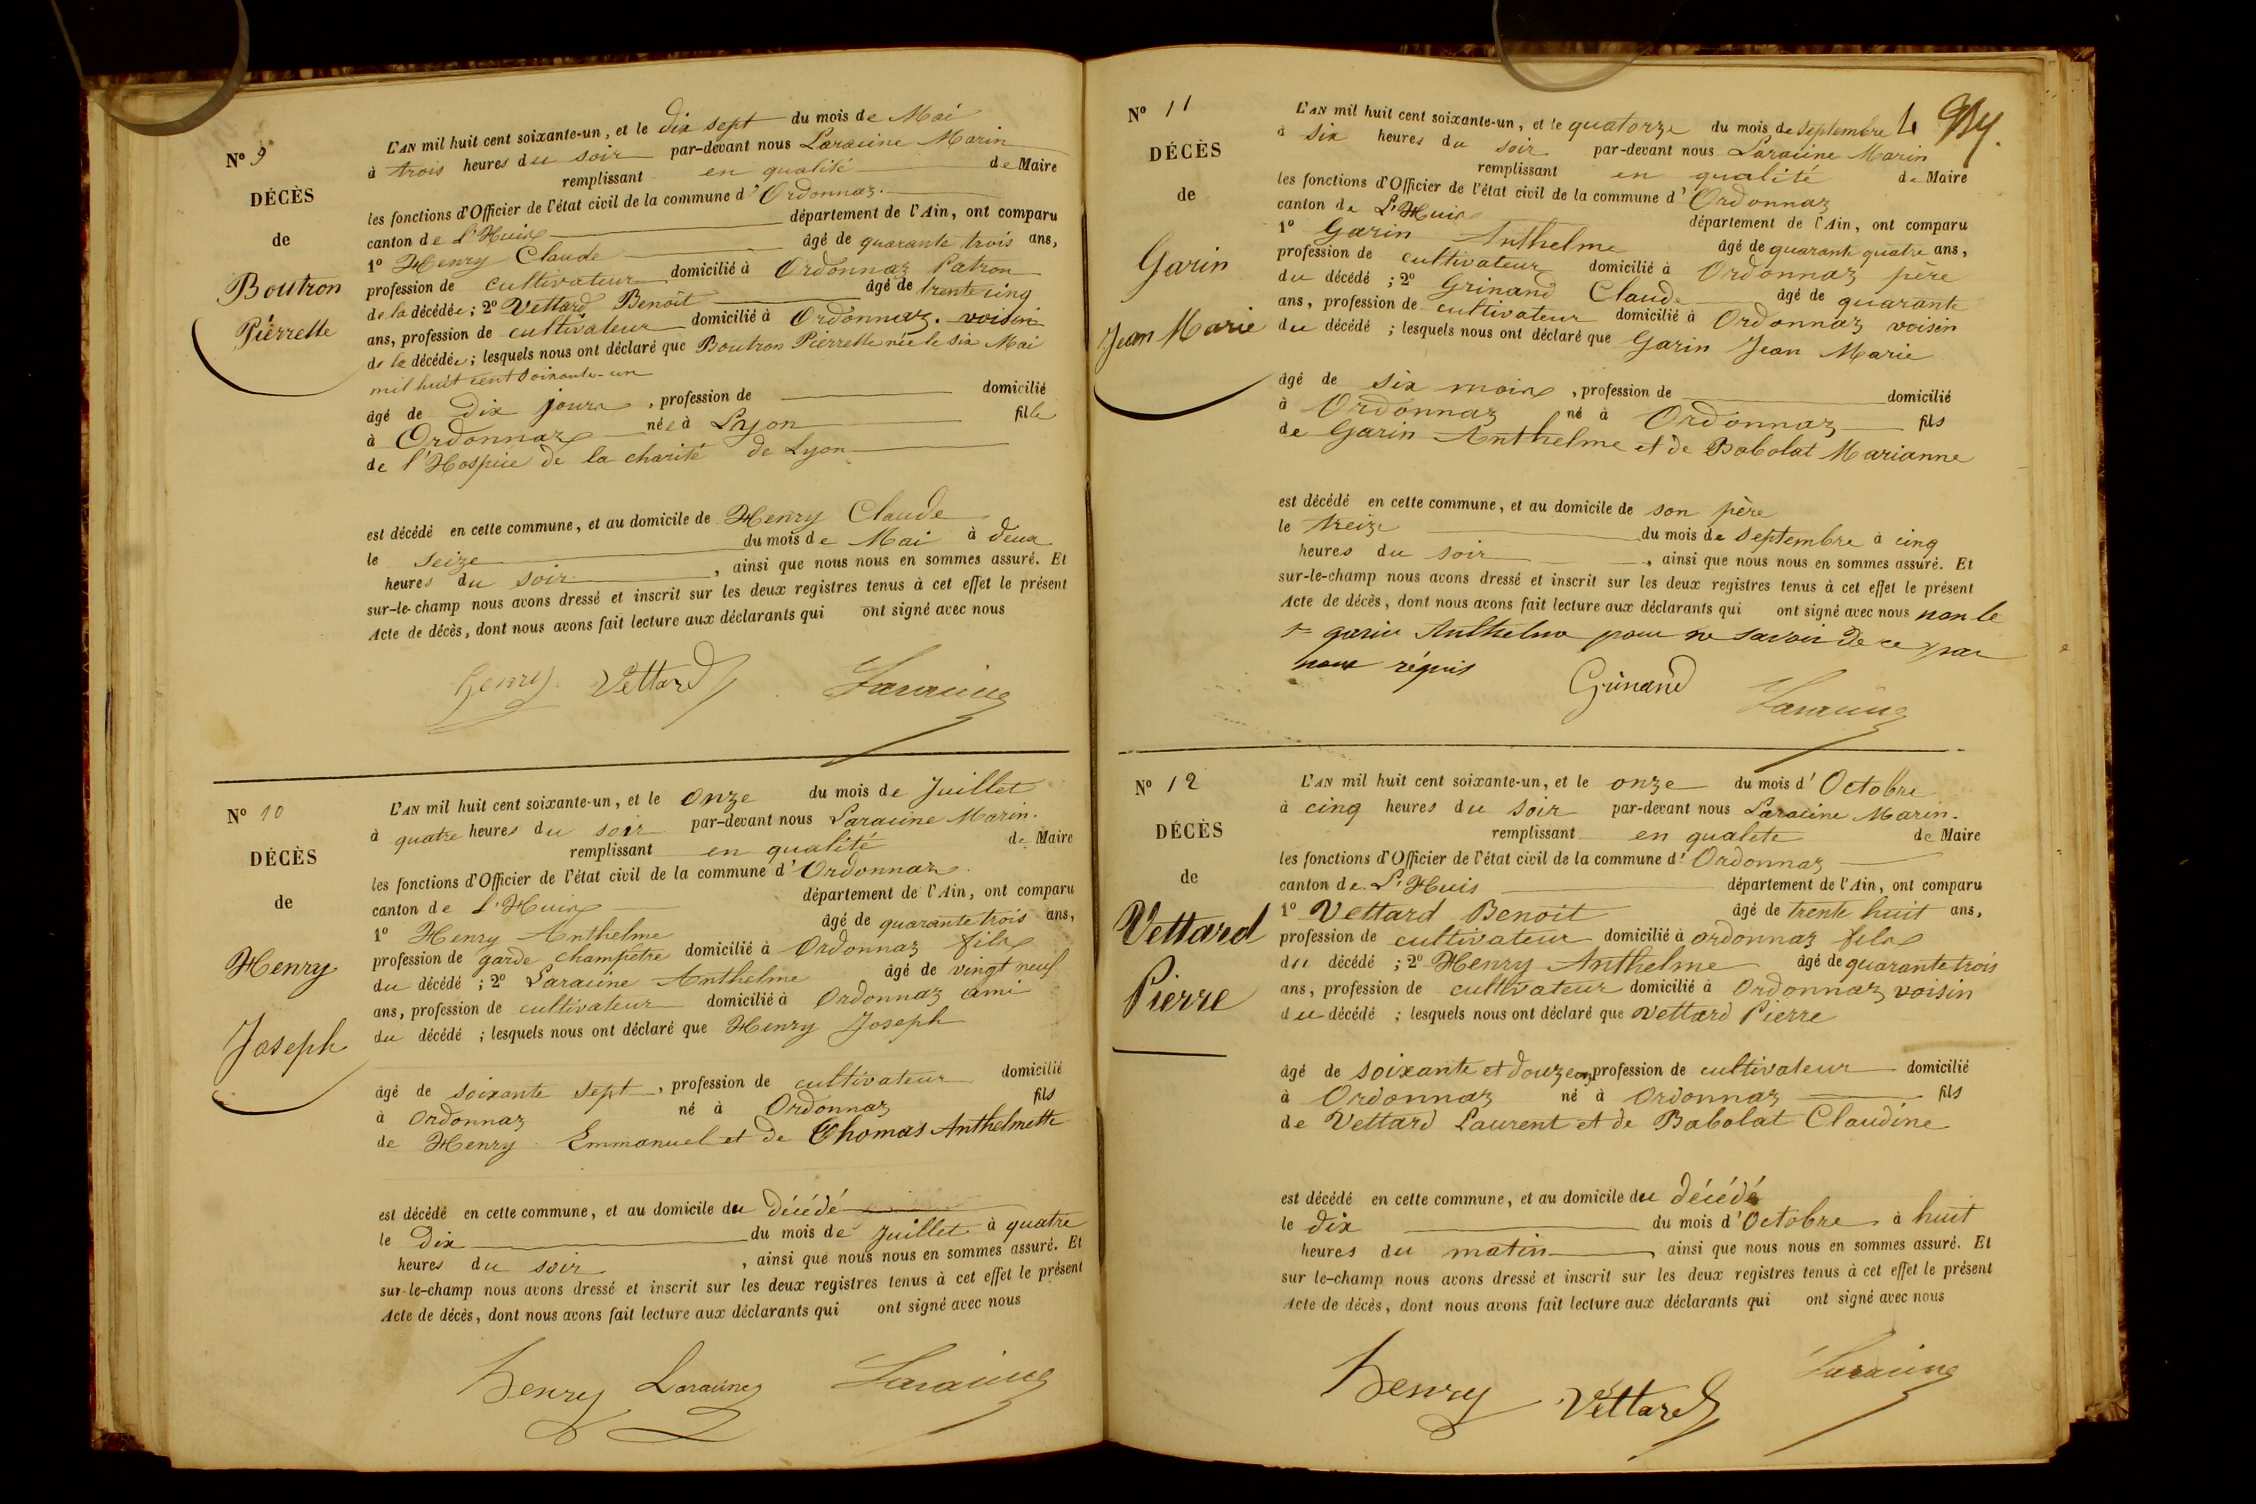 Nº 9
DÉCÈS
de
Boutron
Pierrette
L'AN mil huit cent soixante-un, et le dix sept du mois de Mai
à trois heures du soir par-devant nous Laraine Marin
remplissant en qualité de Maire
les fonctions d'Officier de l'état civil de la commune d'Ordonnaz.
canton de L'Huis département de l'Ain, ont comparu
1º Henry Claude âgé de quarante trois ans,
profession de cultivateur domicilié à Ordonnaz Patron
de la décédée; 2º Vettard Benoit âgé de trente cinq
ans, profession de cultivateur domicilié à Ordonnaz. voisin
de la décédée; lesquels nous ont déclaré que Boutron Pierrette née le six Mai
mil huit cent soixante-un
âgé de dix jours, profession de domicilié
à Ordonnaz née à Lyon fille
de l'Hospice de la charité de Lyon
est décédé en cette commune, et au domicile de Henry Claude
le seize du mois de Mai à deux
heures du soir, ainsi que nous nous en sommes assuré. Et
sur-le-champ nous avons dressé et inscrit sur les deux registres tenus à cet effet le présent
Acte de décès, dont nous avons fait lecture aux déclarants qui ont signé avec nous
henry Vettard Laraine
Nº 10
DÉCÈS
de
Henry
Joseph
L'AN mil huit cent soixante-un, et le onze du mois de Juillet
à quatre heures du soir par-devant nous Laraine Marin.
remplissant en qualité de Maire
les fonctions d'Officier de l'état civil de la commune d'Ordonnaz.
canton de L'Huis département de l'Ain, ont comparu
1º Henry Anthelme âgé de quarante trois ans,
profession de garde champêtre domicilié à Ordonnaz fils
du décédé; 2º Laraine Anthelme âgé de vingt neuf
ans, profession de cultivateur domicilié à Ordonnaz ami
du décédé; lesquels nous ont déclaré que Henry Joseph
âgé de soixante sept, profession de cultivateur domicilié
à Ordonnaz né à Ordonnaz fils
de Henry Emmanuel et de Thomas Anthelmette
est décédé en cette commune, et au domicile du décédé
le dix du mois de Juillet à quatre
heures du soir, ainsi que nous nous en sommes assuré. Et
sur-le-champ nous avons dressé et inscrit sur les deux registres tenus à cet effet le présent
Acte de décès, dont nous avons fait lecture aux déclarants qui ont signé avec nous
henry Laraine Laraine
Nº 11
DÉCÈS
de
Garin
Jean Marie
4
L'AN mil huit cent soixante-un, et le quatorze du mois de septembre
à six heures du soir par-devant nous Laraine Marin
remplissant en qualité de Maire
les fonctions d'Officier de l'état civil de la commune d'Ordonnaz
canton de L'Huis département de l'Ain, ont comparu
1º Garin Anthelme âgé de quarante quatre ans,
profession de cultivateur domicilié à Ordonnaz père
du décédé; 2º Grinand Claude âgé de quarante
ans, profession de cultivateur domicilié à Ordonnaz voisin
du décédé; lesquels nous ont déclaré que Garin Jean Marie
âgé de six mois, profession de domicilié
à Ordonnaz né à Ordonnaz fils
de Garin Anthelme et de Babolat Marianne
est décédé en cette commune, et au domicile de son père
le treize du mois de septembre à cinq
heures du soir, ainsi que nous nous en sommes assuré. Et
sur-le-champ nous avons dressé et inscrit sur les deux registres tenus à cet effet le présent
Acte de décès, dont nous avons fait lecture aux déclarants qui ont signé avec nous non le
sr garin Anthelme pour ne savoir de ce par
nous réquis
Grinand Laraine
Nº 12
DÉCÈS
de
Vettard
Pierre
L'AN mil huit cent soixante-un, et le onze du mois d'Octobre
à cinq heures du soir par-devant nous Laraine Marin.
remplissant en qualité de Maire
les fonctions d'Officier de l'état civil de la commune d'Ordonnaz
canton de L'Huis département de l'Ain, ont comparu
1º Vettard Benoit âgé de trente huit ans,
profession de cultivateur domicilié à ordonnaz fils
du décédé; 2º Henry Anthelme âgé de quarante trois
ans, profession de cultivateur domicilié à Ordonnaz voisin
du décédé; lesquels nous ont déclaré que Vettard Pierre
âgé de soixante et douze ans, profession de cultivateur domicilié
à Ordonnaz né à Ordonnaz fils
de Vettard Laurent et de Babolat Claudine
est décédé en cette commune, et au domicile du décédé
le dix du mois d'Octobre à huit
heures du matin, ainsi que nous nous en sommes assuré. Et
sur le-champ nous avons dressé et inscrit sur les deux registres tenus à cet effet le présent
Acte de décès, dont nous avons fait lecture aux déclarants qui ont signé avec nous
henry Vettard Laraine